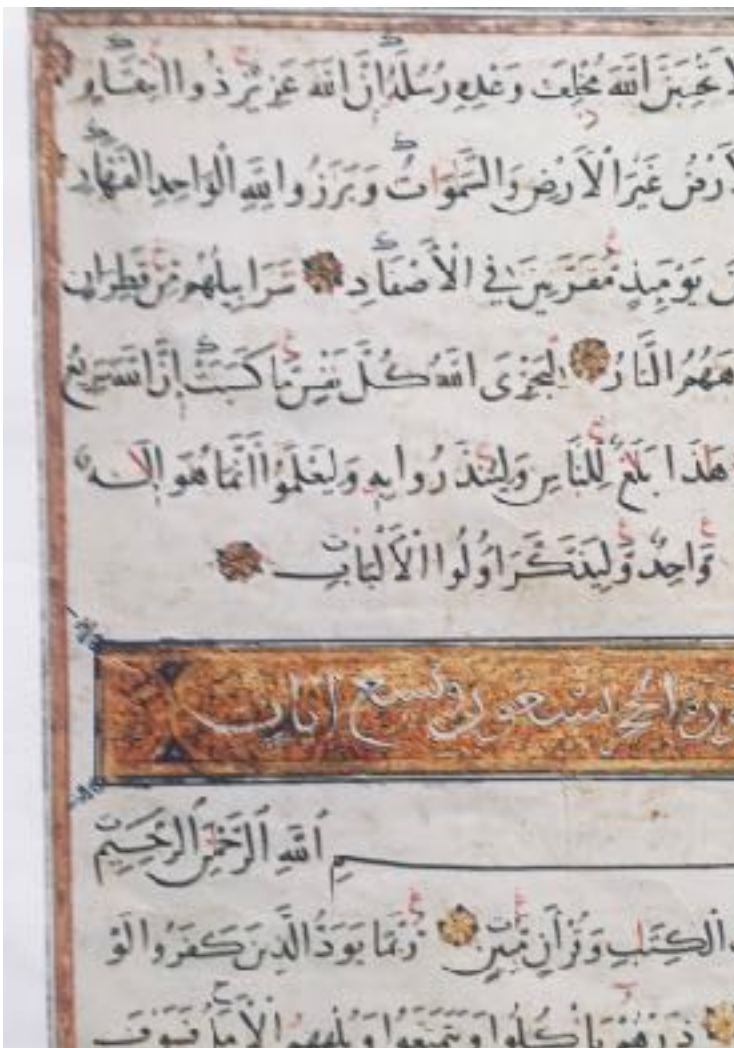 تَحْسَبَنَّ اللَّهَ مُخْلِفَ وَعْدِهِ رُسُلَهُ إِنَّ اللَّهَ عَزِيزٌ ذُو انْتِقَامٍ
الْأَرْضُ غَيْرَ الْأَرْضِ وَالسَّمَوَاتُ وَبَرَزُوا لِلَّهِ الْوَاحِدِ الْقَهَّارِ
يَوْمَئِذٍ مُقَرَّنِينَ فِي الْأَصْفَادِ سَرَابِيلُهُمْ مِنْ قَطِرَانٍ
النَّارُ لِيَجْزِيَ اللَّهُ كُلَّ نَفْسٍ مَا كَسَبَتْ إِنَّ اللَّهَ سَرِيعُ
هَذَا بَلَغٌ لِلنَّاسِ وَلِيُنْذَرُوا بِهِ وَلِيَعْلَمُوا أَنَّمَا هُوَ إِلَهٌ
وَاحِدٌ وَلِيَذَّكَّرَ أُولُوا الْأَلْبَابِ
الحجر تسعون وتسع ايات
اللَّهِ الرَّحْمَنِ الرَّحِيمِ
الْكِتَبِ وَقُرْآنٍ مُبِينٍ رُبَمَا يَوَدُّ الَّذِينَ كَفَرُوا لَوْ
ذَرْهُمْ يَأْكُلُوا وَيَتَمَتَّعُوا وَيُلْهِهِمُ الْأَمَلُ فَسَوْفَ